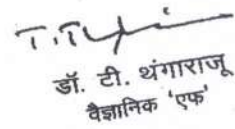 डॉ. टी. थंगाराजू
वैज्ञानिक 'एफ'